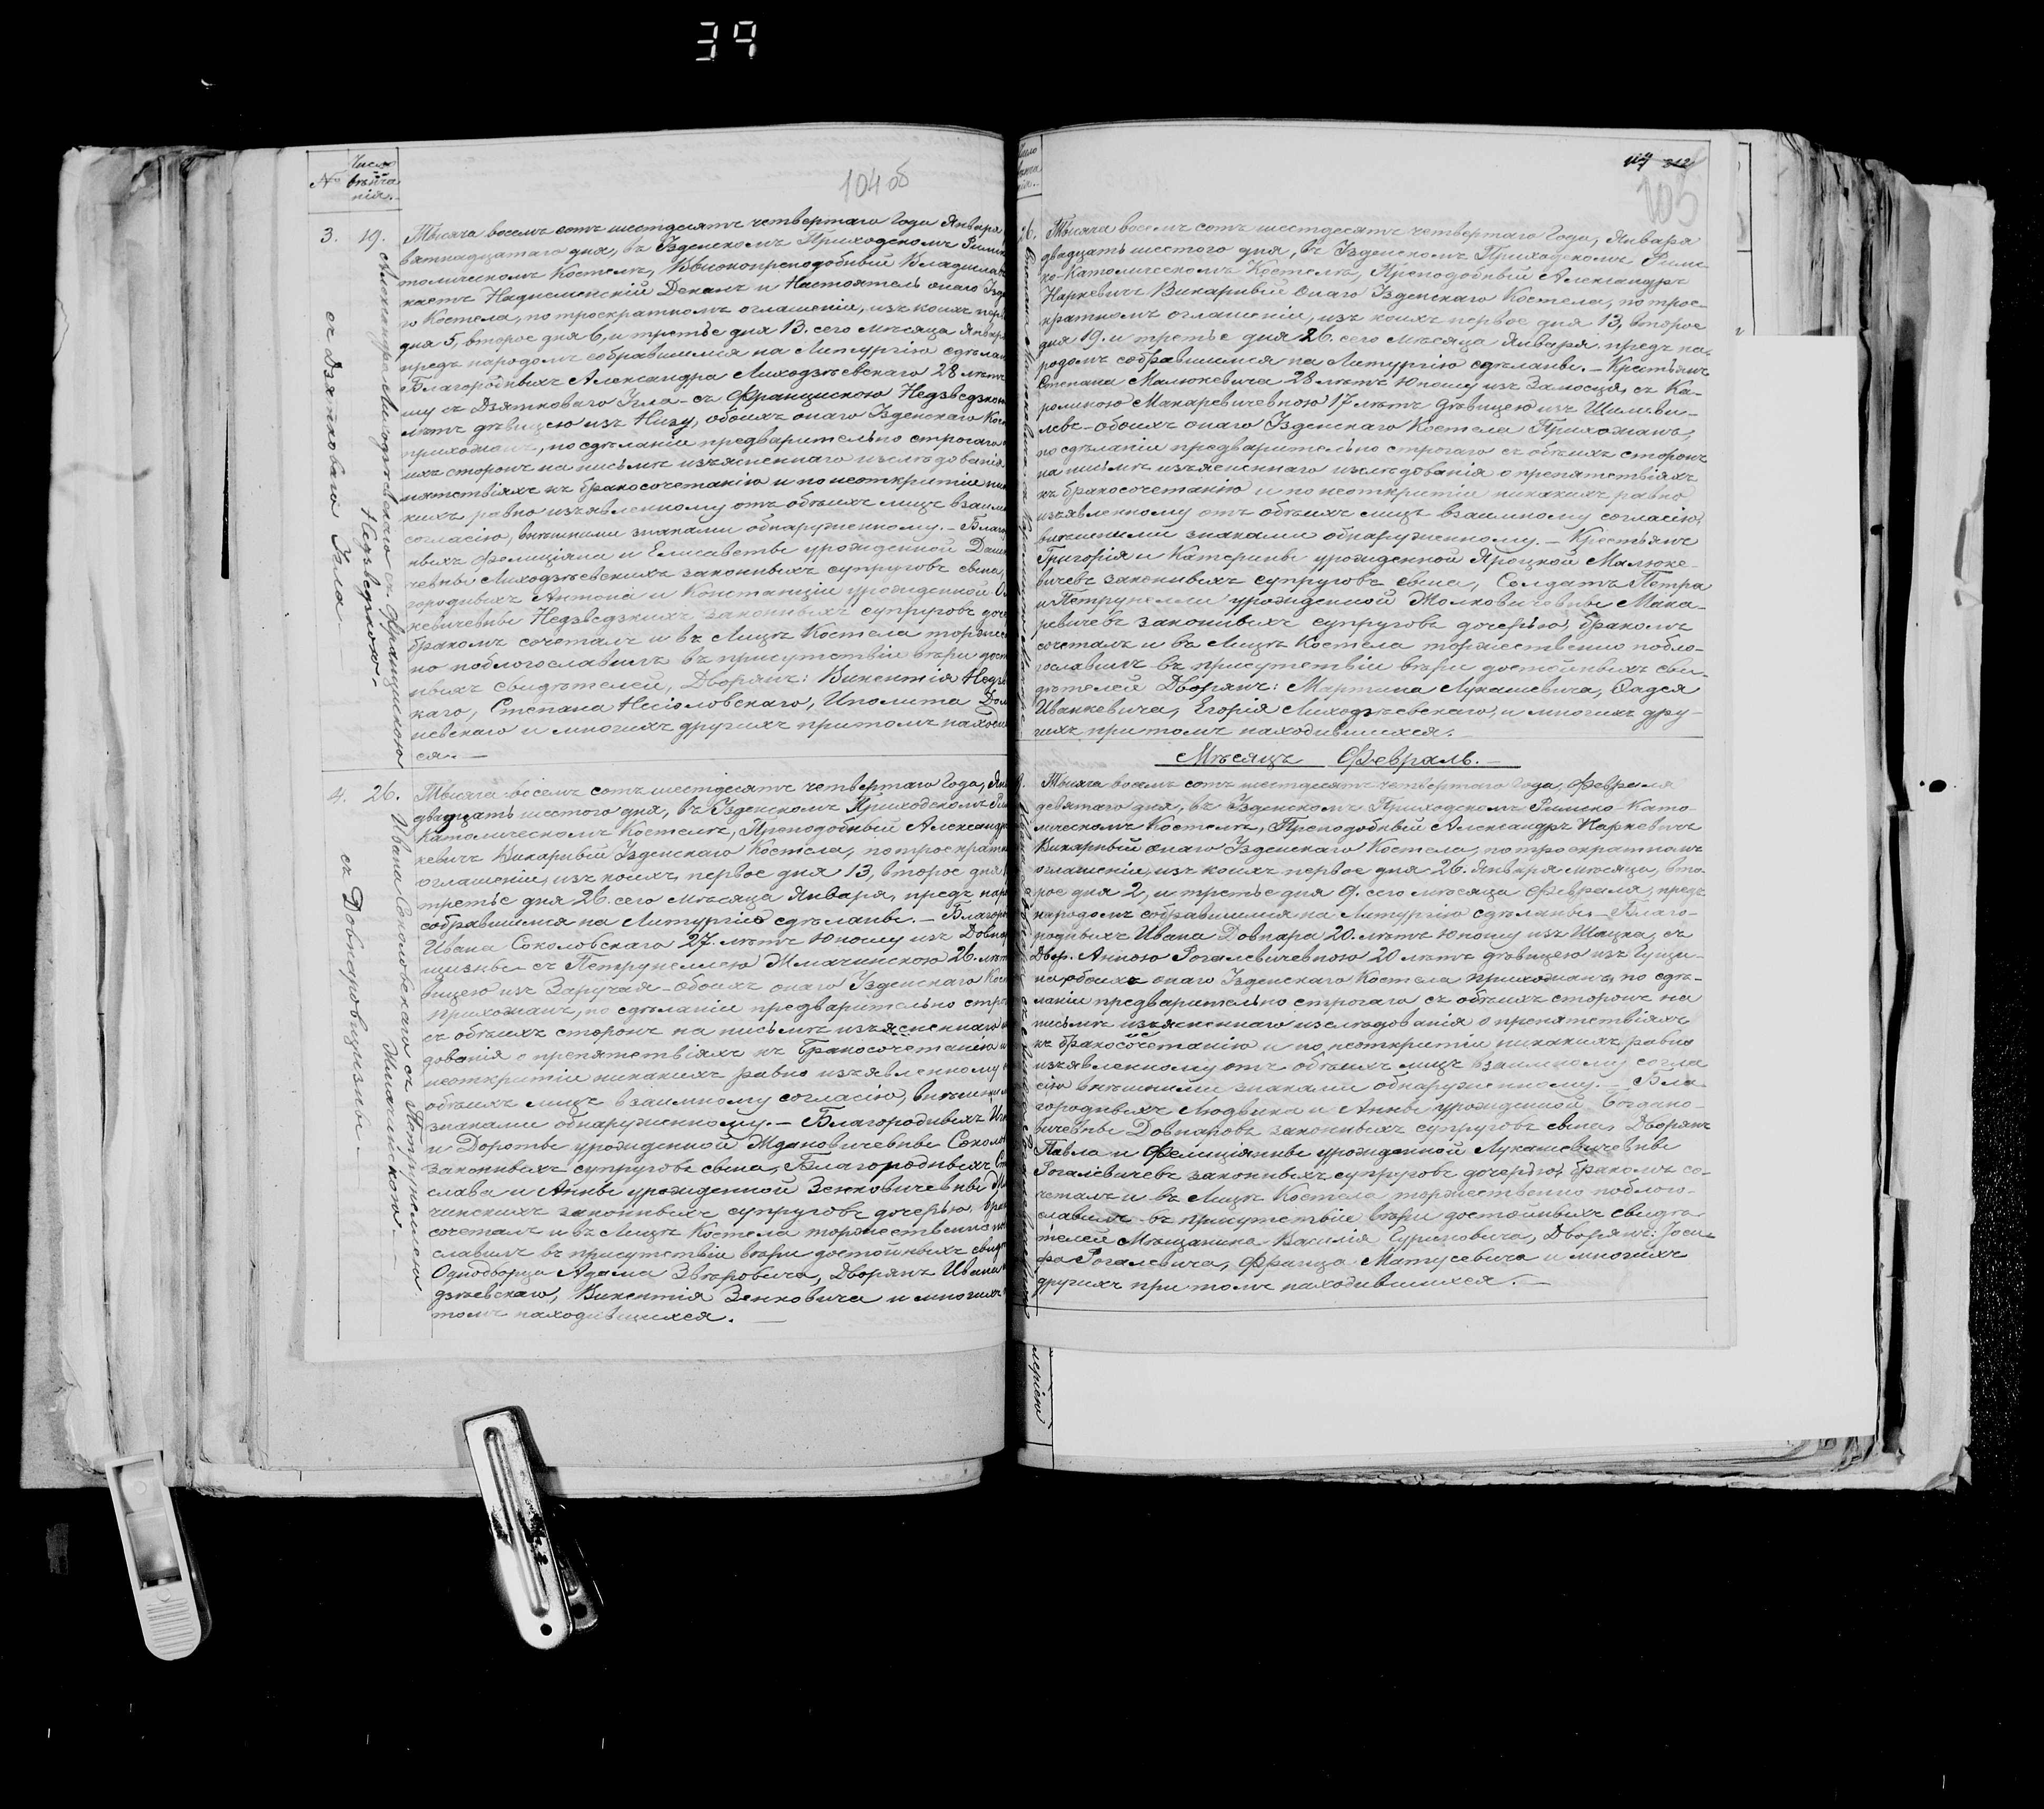 39
104 об
№
Число
вѣнча
нія.
3.
19.
Александра Лиходзѣевскаго съ Францишкою
Недзведзкою.
съ Дзяткового Угла
Тысяча восемь сотъ шестдесятъ четвертаго Года Января
вятнадцатаго дня, въ Узденскомъ Приходскомъ
толическомъ Костелѣ, Высокопреподобный
Наднеменскій Деканъ и Настоятель онаго
го Костела, по троекратномъ оглашеніи, изъ коихъ
дня 5, второе дня 6, и третье дня 13. сего мѣсяца
предъ народомъ собравшимся на Литургію
Благородныхъ Александра Лиходзѣевскаго 28 лѣтъ
шу съ Дзятковаго Угла - съ Францишкою
лѣтъ дѣвицею изъ Низу, обоихъ онаго Узденскаго
прихожанъ, по сдѣланіи предварительно строгаго
ихъ сторонъ на письмѣ изъясненнаго изслѣдованія
пятствіяхъ къ бракосочетанію и по неоткрытіи
кихъ равно изъявленному отъ обѣихъ лицъ
согласію, внѣшними знаками обнаруженному. -
ныхъ Фелиціяна и Елисаветы урожденной
чевны Лиходзѣевскихъ законныхъ супруговъ сына,
городныхъ Антона и Констанціи урожденной
кевичевны Недзведзкихъ законныхъ супруговъ
бракомъ сочеталъ и въ Лицѣ Костела
но поблогославилъ въ присутствіи вѣры
ныхъ свидѣтелей, Дворянъ: Викентія
каго, Степана Несіоловскаго, Иполита
невскаго и многихъ другихъ притомъ
ся. —
4.
26.
Ивана Соколовскаго съ Петрунеллею
Жмачинскою.
съ Довнаровщизны
Тысяча восемь сотъ шестдесятъ четвертаго Года,
двадцать шестого дня, въ Узденскомъ Приходскомъ
Католическомъ Костелѣ, Преподобный
кевичъ Викарный Узденскаго Костела,
оглашеніи, изъ коихъ первое дня 13, второе дня
третье дня 26. сего мѣсяца Января, предъ
собравшимся на Литургію сдѣланы. -
Ивана Соколовскаго 27. лѣтъ Юношу изъ
щизны - съ Петрунеллею Жмачинскою 26.
вицею изъ Заручая - обоихъ онаго Узденскаго
прихожанъ, по сдѣланіи предварительно
съ обѣихъ сторонъ на письмѣ изъясненнаго
дованія о препятствіяхъ къ бракосочетанію и
неоткрытіи никакихъ равно изъявленному
обѣихъ лицъ взаимному согласію,
знаками обнаруженному. - Благородныхъ
и Дороты урожденной Ждановичевны
законныхъ супруговъ сына, Благородныхъ
слава и Анны урожденной Зенковичевны
чинскихъ законныхъ супруговъ дочерью
сочеталъ и въ Лицѣ Костела торжественно
славилъ въ присутствіи вѣры достойныхъ
Однодворца Адама Звѣровича, Дворянъ Ивана
дзѣевскаго, Викентія Зенковича и многихъ
томъ находившихся. —
105
26.
Тысяча восемь сотъ шестдесятъ четвертаго Года, Января
двадцать шестого дня, въ Узденскомъ Приходскомъ Римс-
ко-Католическомъ Костелѣ, Преподобный Александръ
Наркевичъ Викарный онаго Узденскаго Костела, по трое-
кратномъ оглашеніи, изъ коихъ первое дня 13, второе
дня 19. и третье дня 26. сего мѣсяца Января предъ на-
родомъ собравшимся на Литургію сдѣланы. - Крестьянъ
Степана Малюкевича 28 лѣтъ Юношу изъ Замосця, съ Ка-
ролиною Макаревичевною 17 лѣтъ дѣвицею изъ
- обоихъ онаго Узденскаго Костела Прихожанъ,
по сдѣланіи предварительно строгаго съ обѣихъ сторонъ
на письмѣ изъясненнаго изслѣдованія о препятствіяхъ
къ бракосочетанію и по неоткрытіи никакихъ равно
изъявленному отъ обѣихъ лицъ взаимному согласію,
внѣшними знаками обнаруженному. - Крестьянъ
Григорія и Катерины урожденной Яроцкой Малюке-
вичевъ законныхъ супруговъ сына, Солдатъ Петра
и Петрунелли урожденной Жолковичевны Мака-
ревичевъ законныхъ супруговъ дочерью, бракомъ
сочеталъ и въ Лицѣ Костела торжественно побло-
гославилъ въ присутствіи вѣры достойныхъ сви-
дѣтелей Дворянъ: Мартина Лукашевича, Фадея
Иванкевича, Егорія Лиходзѣевскаго, и многихъ дру-
гихъ притомъ находившихся.
Мѣсяцъ Февраль. —
9.
Тысяча восемь сотъ шестдесятъ четвертаго Года, Февраля
девятаго дня, въ Узденскомъ Приходскомъ Римско-Като-
лическомъ Костелѣ, Преподобный Александръ Наркевичъ
Викарный онаго Узденскаго Костела, по троекратномъ
оглашеніи, изъ коихъ первое дня 26. Января мѣсяца, вто-
рое дня 2, и третье дня 9. сего мѣсяца Февраля, предъ
народомъ собравшимся на Литургію сдѣланы. - Благо-
родныхъ Ивана Довнара 20. лѣтъ Юношу изъ Шацка, съ
Двор. Анною Рогалевичевною 20 лѣтъ дѣвицею изъ
обоихъ онаго Узденскаго Костела прихожанъ, по сдѣ-
ланіи предварительно строгаго съ обѣихъ сторонъ на
письмѣ изъясненнаго изслѣдованія о препятствіяхъ
къ бракосочетанію и по неоткрытіи никакихъ равно
изъявленному отъ обѣихъ лицъ взаимному согла
сію внѣшними знаками обнаруженному. - Бла-
городныхъ Людвика и Анны урожденной
вичевны Довнаровъ законныхъ супруговъ сына, Дворянъ
Павла и Фелиціянны урожденной Лукашевичевны
Рогалевичевъ законныхъ супруговъ дочерью, бракомъ со-
четалъ и въ Лицѣ Костела торжественно поблого-
славилъ въ присутствіи вѣры достойныхъ свидѣ-
телей Мѣщанина Василія Суриновича, Дворянъ: Іоси-
фа Рогалевича, Франца Матусевича и многихъ
другихъ при томъ находившихся. —